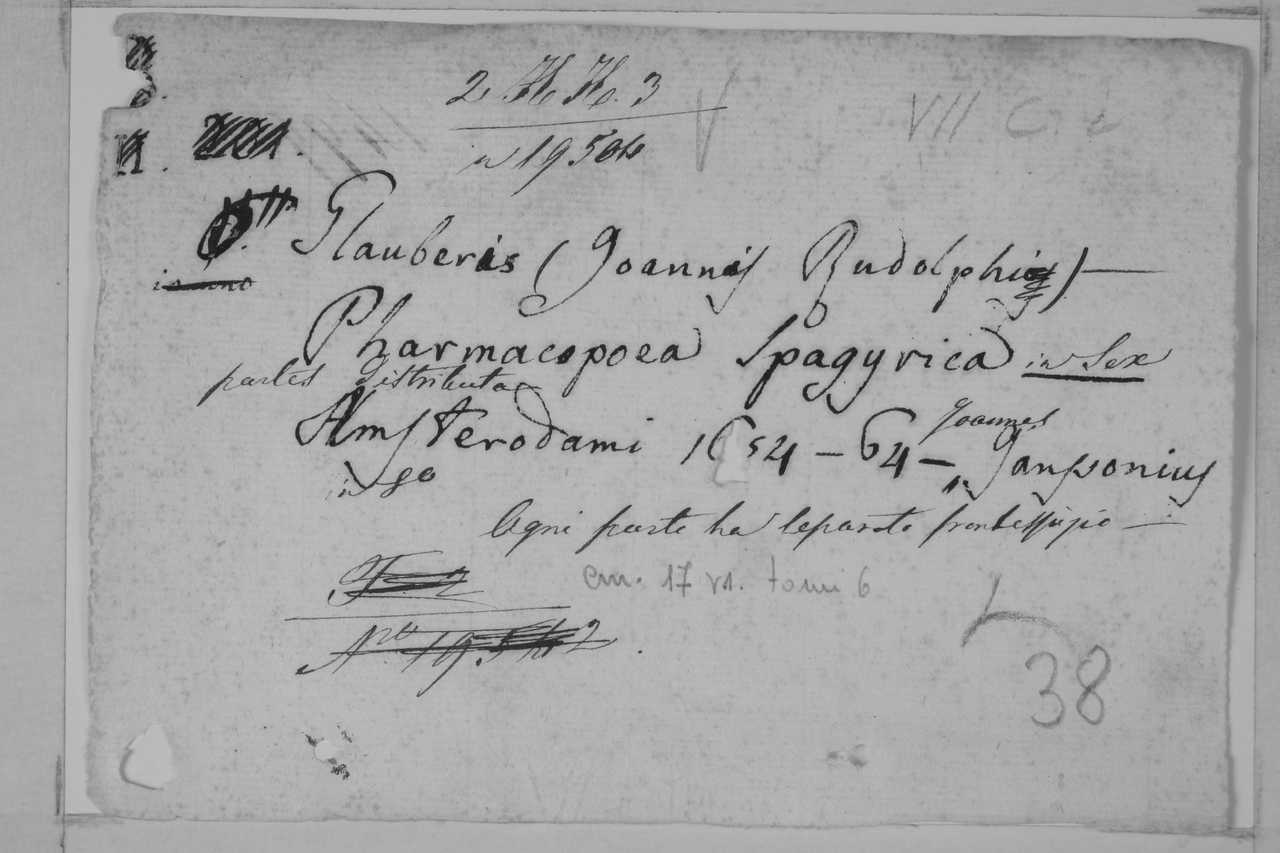 2 H H. 3
VII C. 2
V
Glauberis (Joannis Rudolphi)
Pharmacopoea Spagyrica in Sex
partes distributa
Amsterodami 1654 - 64 - Joannes Jansonius
in 8º
Ogni parte ha separato frontespizio
cm. 17 vl. tomi 6
38